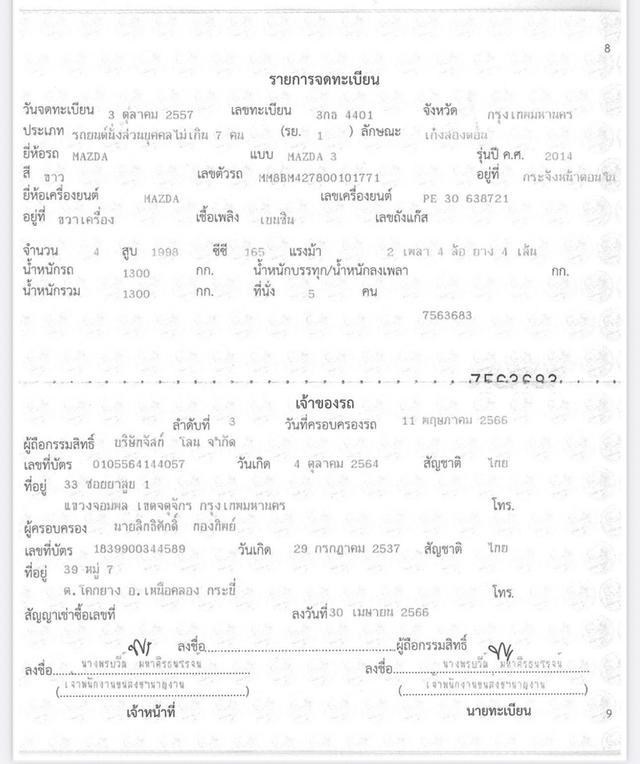 8
รายการจดทะเบียน
วันจดทะเบียน 3 ตุลาคม 2557 เลขทะเบียน 3กธ 4401 จังหวัด กรุงเทพมหานคร
ประเภท รถยนต์นั่งส่วนบุคคลไม่เกิน 7 คน (รย. 1 ) ลักษณะ เก๋งสองตอน
ยี่ห้อรถ MAZDA แบบ MAZDA 3 รุ่นปี ค.ศ. 2014
สี ขาว เลขตัวรถ MM8BM427800101771 อยู่ที่ กระจังหน้าตอนใน
ยี่ห้อเครื่องยนต์ MAZDA เลขเครื่องยนต์ PE 30 638721
อยู่ที่ ขวาเครื่อง เชื้อเพลิง เบนซิน เลขถังแก๊ส
จำนวน 4 สูบ 1998 ซีซี 165 แรงม้า 2 เพลา 4 ล้อ ยาง 4 เส้น
น้ำหนักรถ 1300 กก. น้ำหนักบรรทุก/น้ำหนักลงเพลา กก.
น้ำหนักรวม 1300 กก. ที่นั่ง 5 คน
7563683
7563683
เจ้าของรถ
ลำดับที่ 3 วันที่ครอบครองรถ 11 พฤษภาคม 2566
ผู้ถือกรรมสิทธิ์ บริษัทจัสท์ โลน จำกัด
เลขที่บัตร 0105564144057 วันเกิด 4 ตุลาคม 2564 สัญชาติ ไทย
ที่อยู่ 33 ซอยยาสูบ 1
แขวงจอมพล เขตจตุจักร กรุงเทพมหานคร โทร.
ผู้ครอบครอง นายสิทธิศักดิ์ ทองทิพย์
เลขที่บัตร 1839900344589 วันเกิด 29 กรกฎาคม 2537 สัญชาติ ไทย
ที่อยู่ 39 หมู่ 7
ต.โคกยาง อ.เหนือคลอง กระบี่ โทร.
สัญญาเช่าซื้อเลขที่ ลงวันที่ 30 เมษายน 2566
ลงชื่อ ผู้ถือกรรมสิทธิ์
ลงชื่อ ลงชื่อ
(เจ้าพนักงานขนส่งชำนาญงาน) (เจ้าพนักงานขนส่งชำนาญงาน)
เจ้าหน้าที่ นายทะเบียน
9